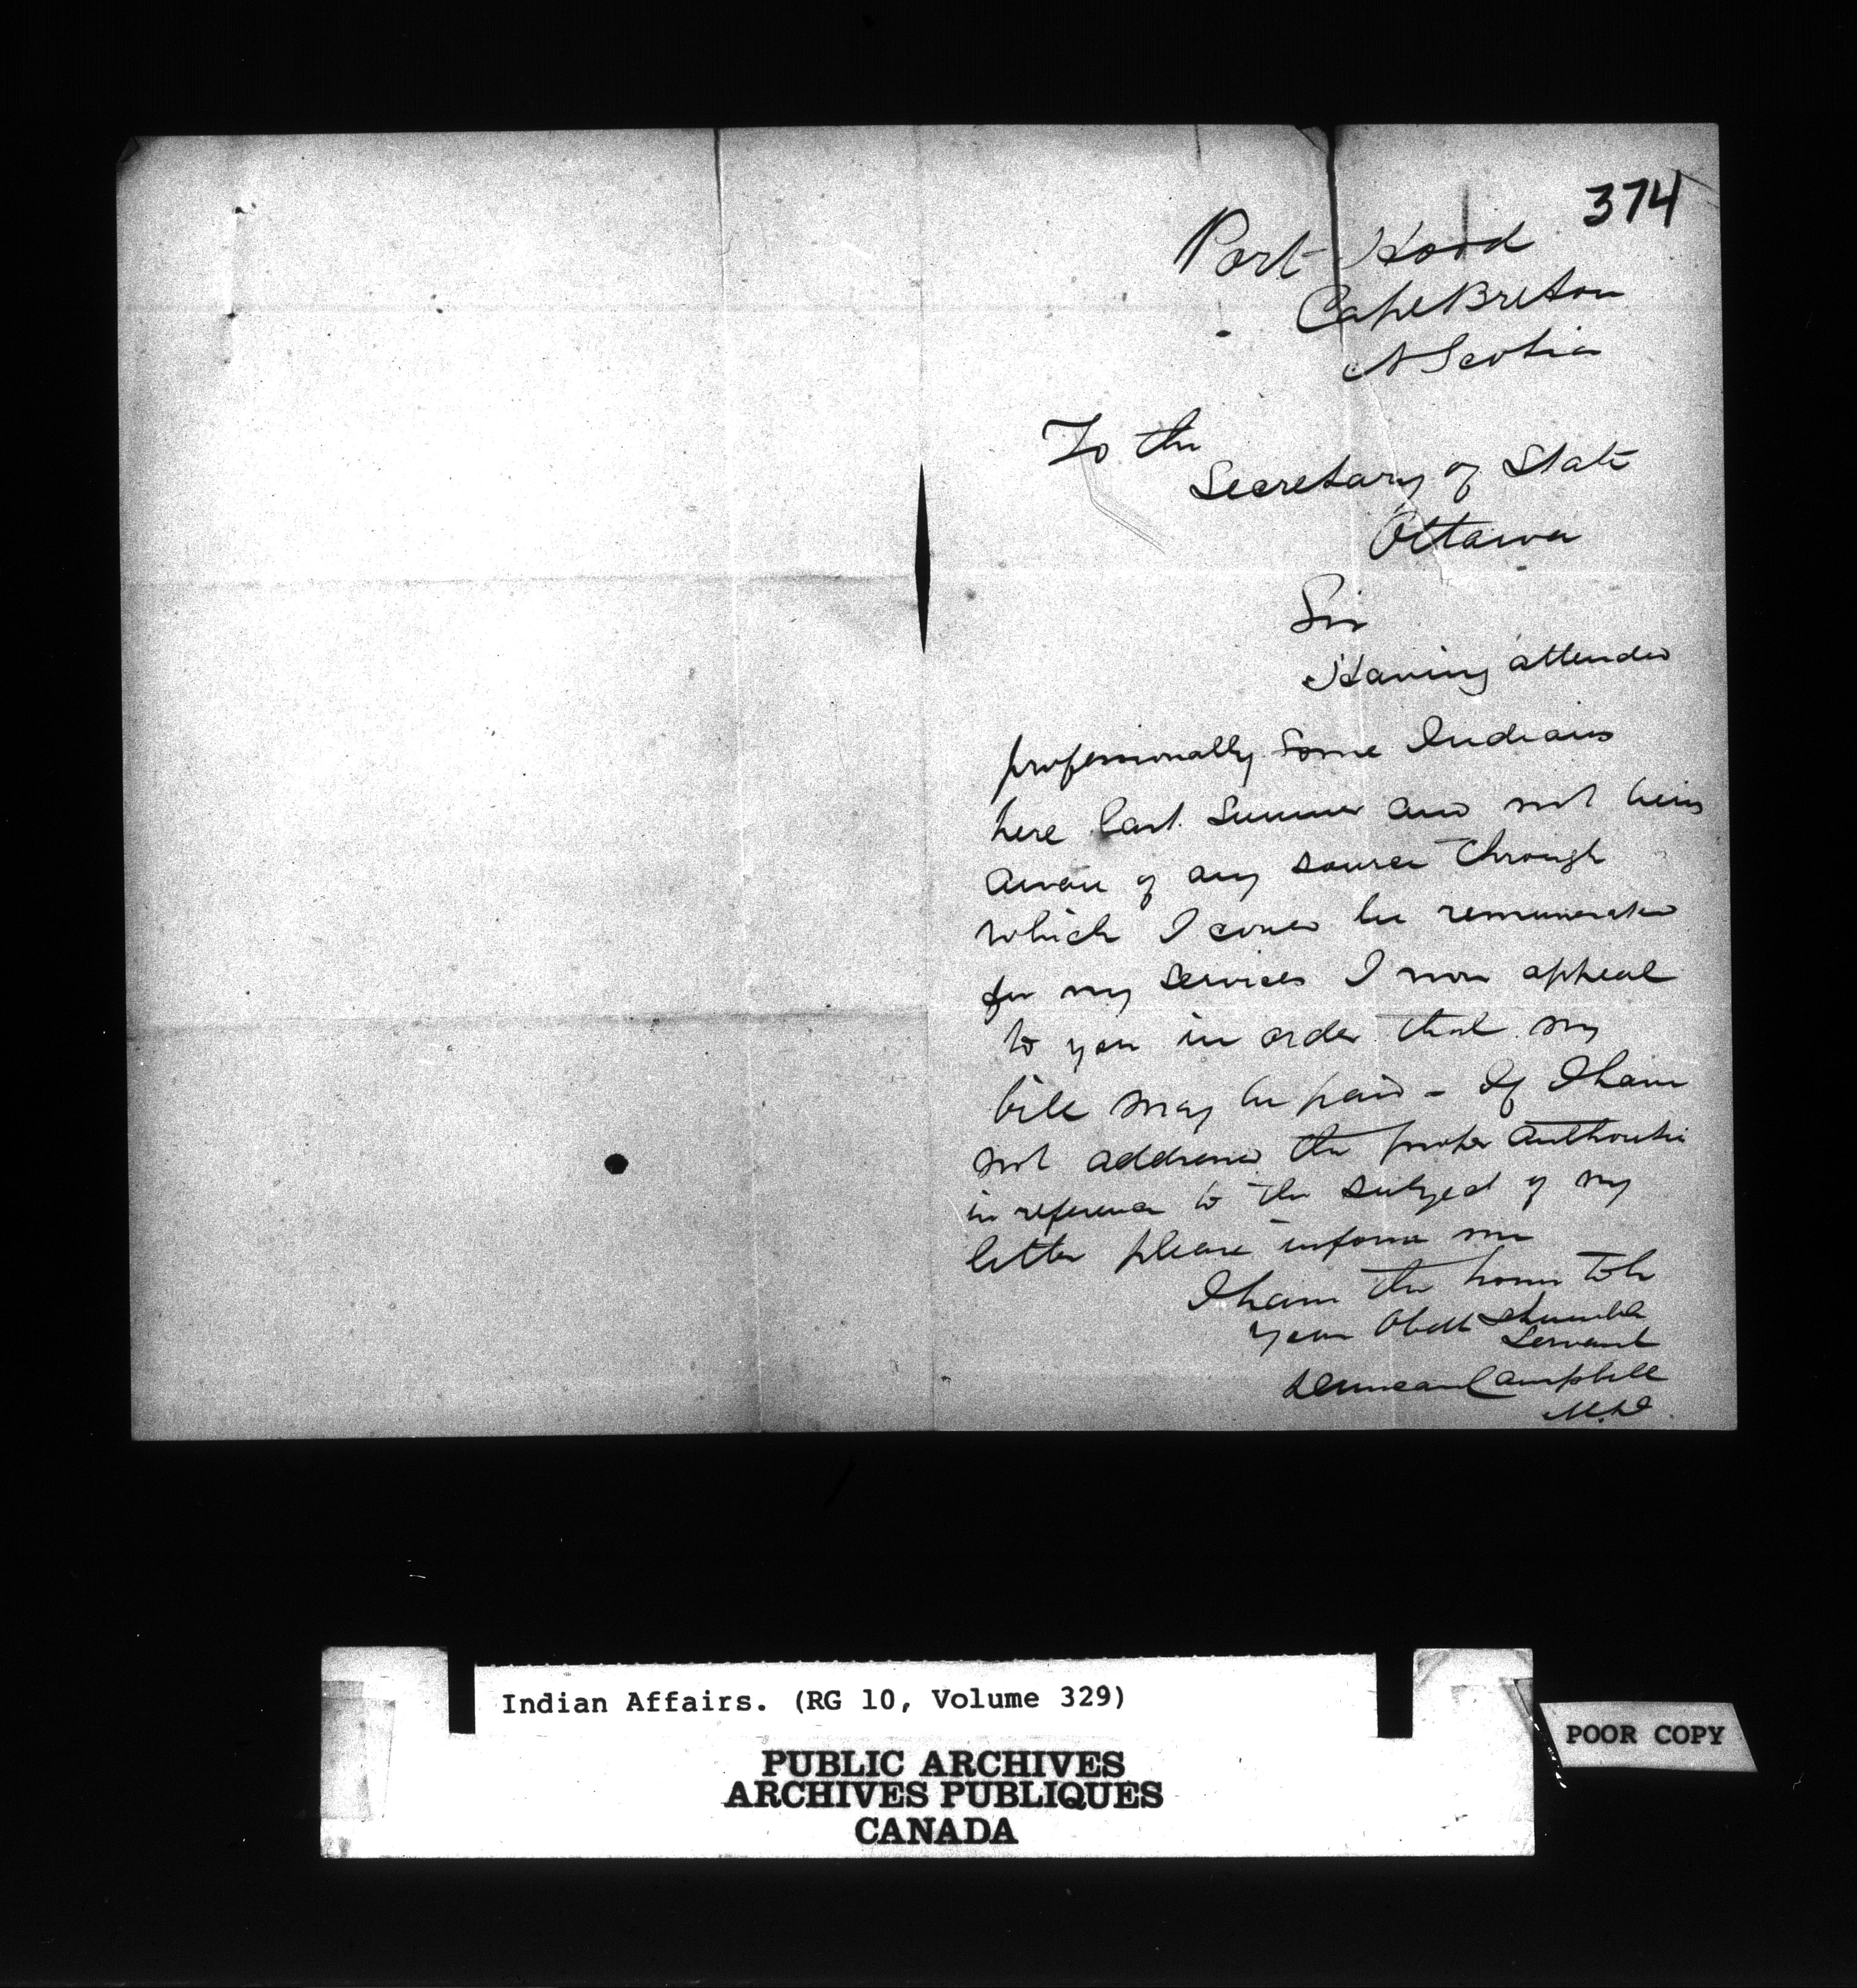 374
Port Hood
Cape Breton
N Scotia
To the
Secretary of State
Ottawa
Sir
Having attended
professionally some Indians
here last Summer and not being
aware of any source through
which I could be remunerated
for my services I now appeal
to you in order that my
bill may be paid - If I have
not addressed the proper authorities
in reference to the subject of my
letter please inform me
I have the honor to be
your Obdt Humble
Servant
Duncan Campbell
M.D.
Indian Affairs. (RG 10, Volume 329)
PUBLIC ARCHIVES
ARCHIVES PUBLIQUES
CANADA
POOR COPY